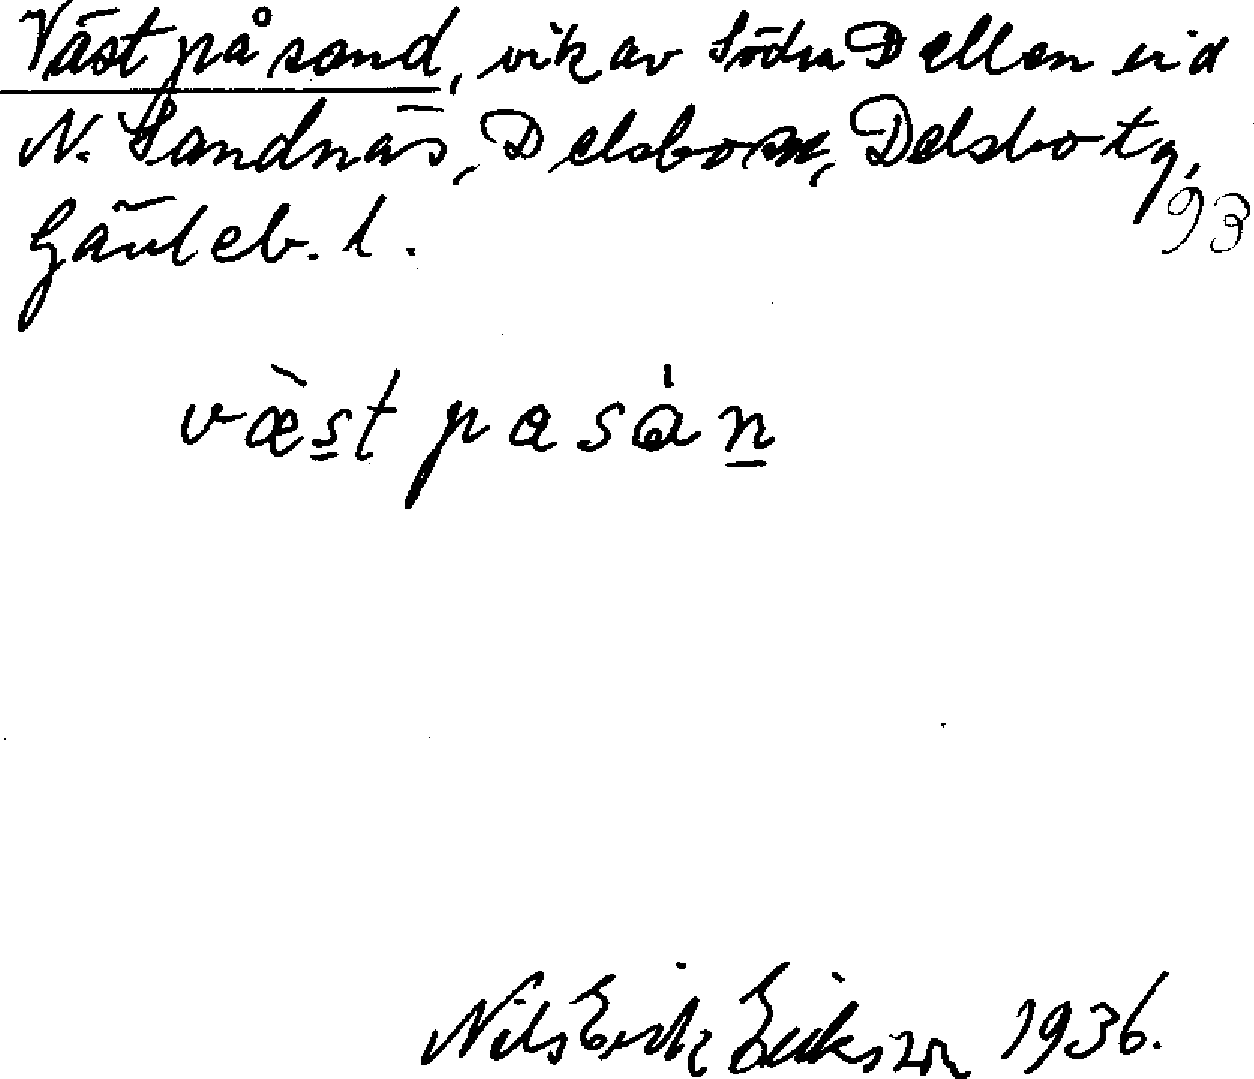 Väst på sand, vik av Södra Dellen vid
N. Sandnäs, Delsbo sn, Delsbo tg,
Gävleb. l. 93
væ̀st pasán
Nils Erik Erikson 1936.